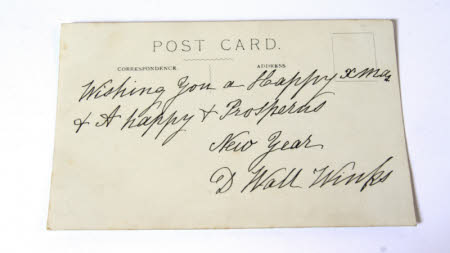 POST CARD.
CORRESPONDENCE. ADDRESS.
Wishing You a Happy xmas
& A happy & Prosperus
New Year
D Wall Winks